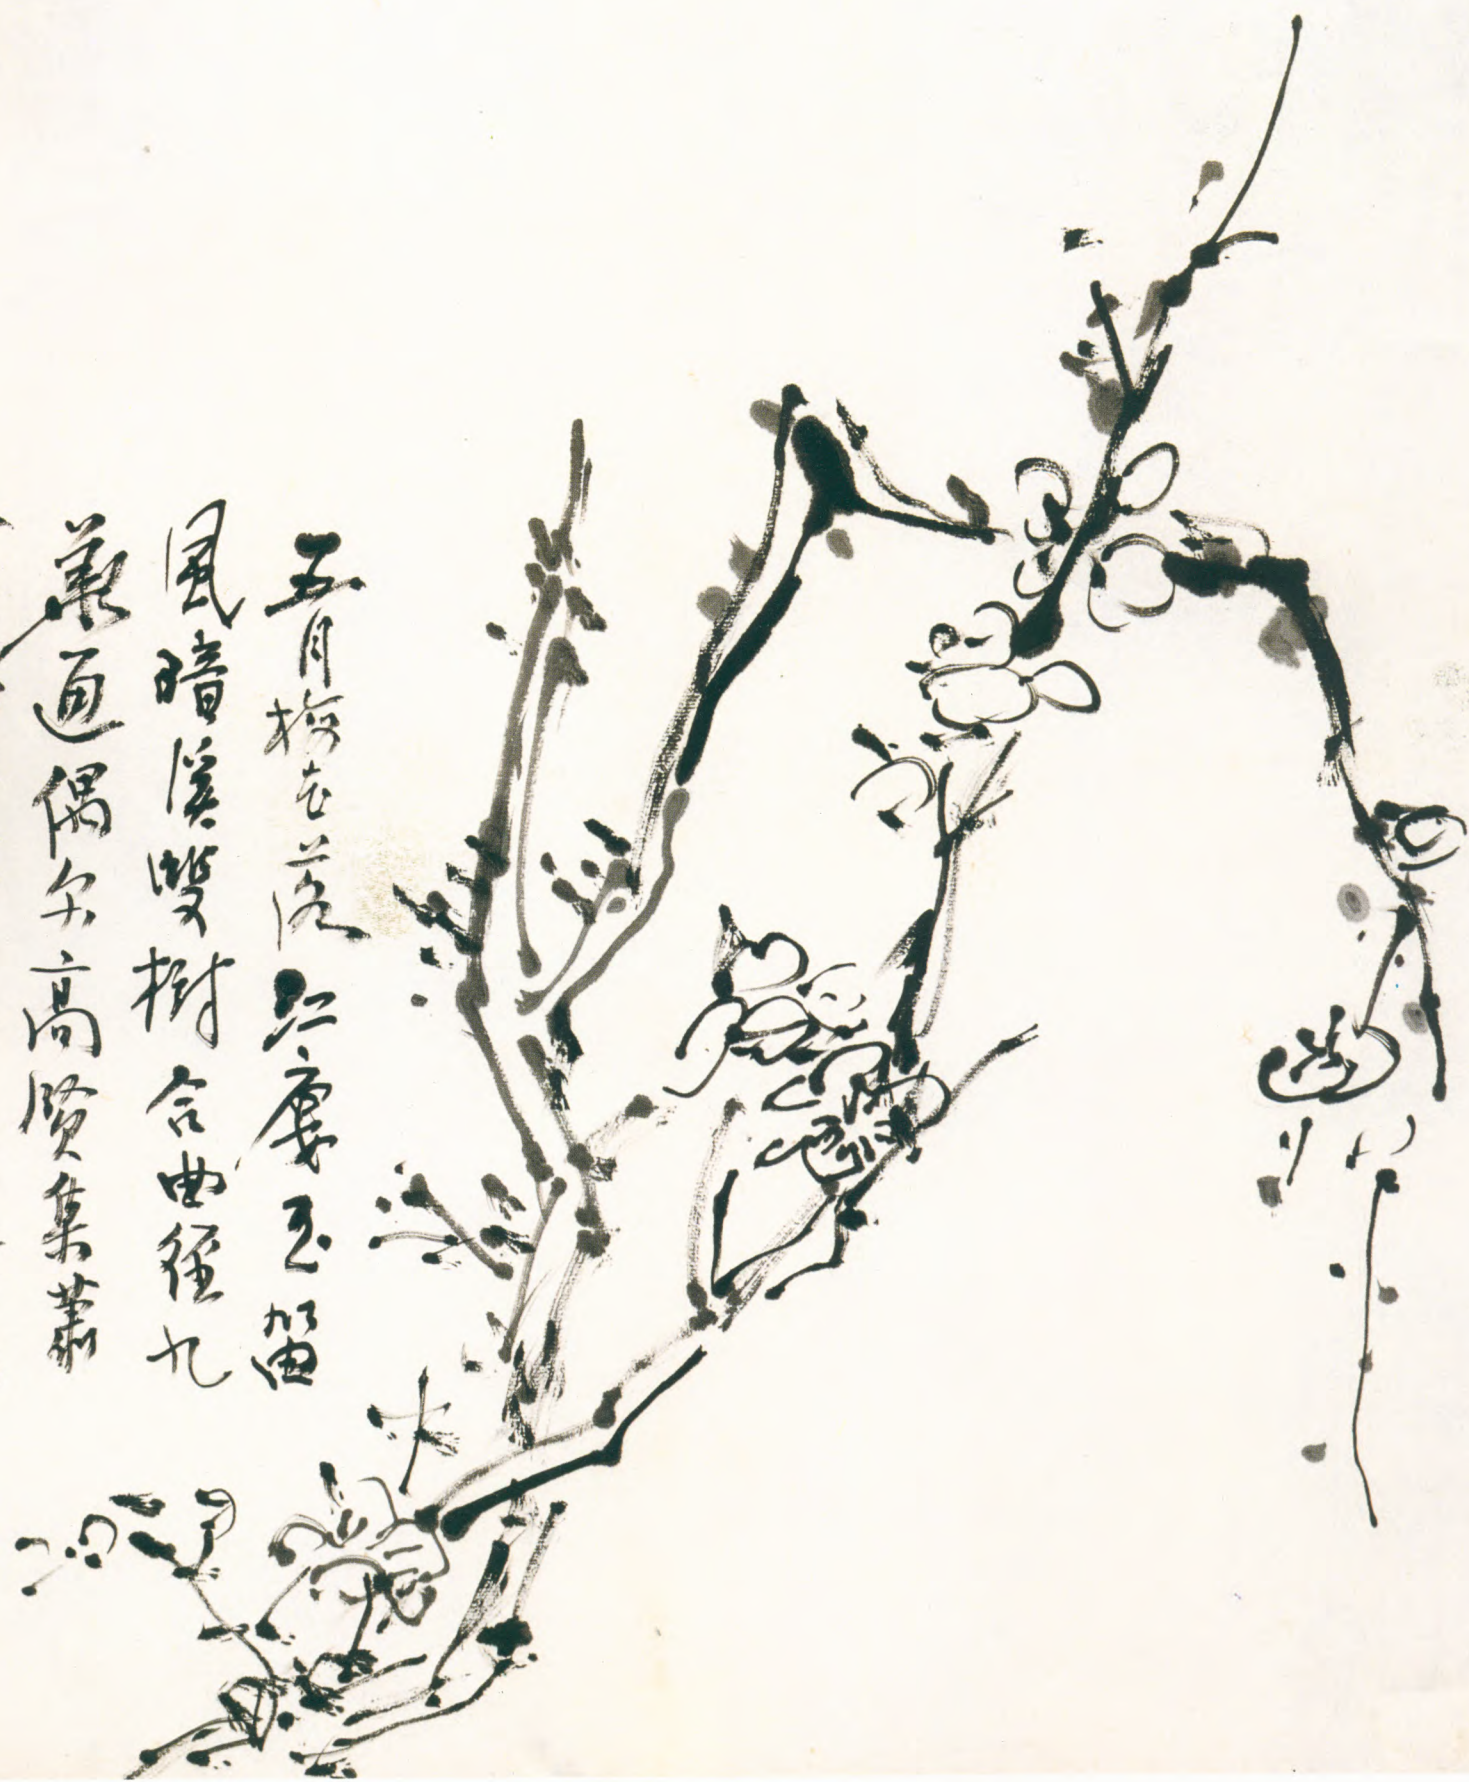 五月梅花落江廔玉笛
風暗溪雙樹合曲徑九
通偶尔高賢集蕭